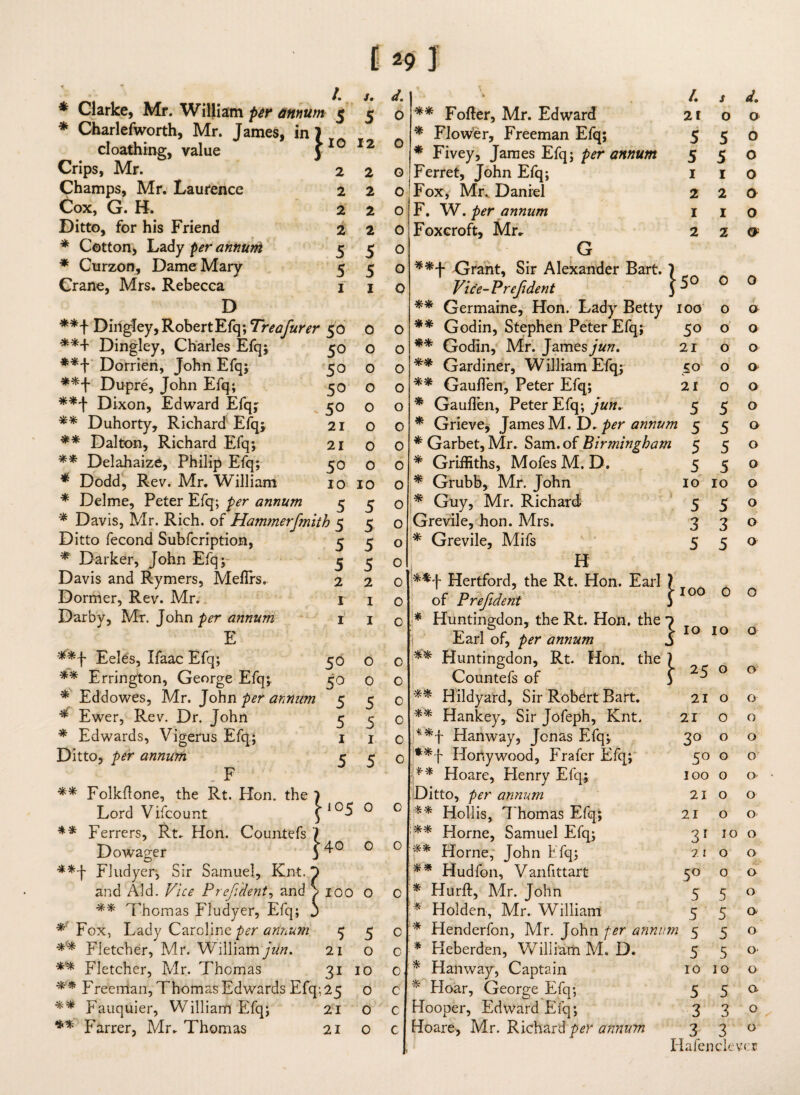 [ 29 ]
l. s. d.
* Clarke, Mr. William per annum 5 5 0
* Charleſworth, Mr. James, in }
cloathing, value } 10 12 0
Crips, Mr. 2 2 0
Champs, Mr. Laurence 2 2 0
Cox, G. H. 2 2 0
Ditto, for his Friend 2 2 0
* Cotton, Lady per annum 5 5 0
* Curzon, Dame Mary 5 5 0
Crane, Mrs. Rebecca 1 1 0
D
**† Dingley, Robert Eſq; Treaſurer 50 0 0
**† Dingley, Charles Eſq; 50 0 0
**† Dorrien, John Eſq; 50 0 0
**† Dupré, John Eſq; 50 0 0
**† Dixon, Edward Eſq; 50 0 0
** Duhorty, Richard Eſq; 21 0 0
** Dalton, Richard Eſq; 21 0 0
** Delahaize, Philip Eſq; 50 0 0
* Dodd, Rev. Mr. William 10 10 0
* Delme, Peter Eſq; per annum 5 5 0
* Davis, Mr. Rich. of Hammerſmith 5 5 0
Ditto ſecond Subſcription, 5 5 0
* Darker, John Eſq; 5 5 0
Davis and Rymers, Meſſrs. 2 2 0
Dormer, Rev. Mr. 1 1 0
Darby, Mr. John per annum 1 1 0
E
**† Eeles, Iſaac Eſq; 50 0 0
** Errington, George Eſq; 50 0 0
* Eddowes, Mr. John per annum 5 5 0
* Ewer, Rev. Dr. John 5 5 0
* Edwards, Vigerus Eſq; 1 1 0
Ditto, per annum 5 5 0
F
** Folkſtone, the Rt. Hon. the }
Lord Viſcount } 105 0 0
** Ferrers, Rt. Hon. Counteſs }
Dowager } 40 0 0
**† Fludyer, Sir Samuel, Knt. }
and Ald. Vice Preſident, and } 100 0 0
** Thomas Fludyer, Eſq; }
* Fox, Lady Caroline per annum 5 5 0
** Fletcher, Mr. William jun. 21 0 0
** Fletcher, Mr. Thomas 31 10 0
** Freeman, Thomas Edwards Eſq; 25 0 0
** Fauquier, William Eſq; 21 0 0
** Farrer, Mr. Thomas 21 0 0
l. s d.
** Foſter, Mr. Edward 21 0 0
* Flower, Freeman Eſq; 5 5 0
* Fivey, James Eſq; per annum 5 5 0
Ferret, John Eſq; 1 1 0
Fox, Mr. Daniel 2 2 0
F. W. per annum 1 1 0
Foxcroft, Mr. 2 2 0
G
**† Grant, Sir Alexander Bart. }
Vice-Preſident } 50 0 0
** Germaine, Hon. Lady Betty 100 0 0
** Godin, Stephen Peter Eſq; 50 0 0
** Godin, Mr. James jun. 21 0 0
** Gardiner, William Eſq; 50 0 0
** Gauſſen, Peter Eſq; 21 0 0
* Gauſſen, Peter Eſq; jun. 5 5 0
* Grieve, James M. D. per annum 5 5 0
* Garbet, Mr. Sam. of Birmingham 5 5 0
* Griffiths, Moſes M. D. 5 5 0
* Grubb, Mr. John 10 10 0
* Guy, Mr. Richard 5 5 0
Grevile, hon. Mrs. 3 3 0
* Grevile, Miſs 5 5 0
H
**† Hertford, the Rt. Hon. Earl }
of Preſident } 100 0 0
* Huntingdon, the Rt. Hon. the }
Earl of, per annum } 10 10 0
** Huntingdon, Rt. Hon. the }
Counteſs of } 25 0 0
** Hildyard, Sir Robert Bart. 21 0 0
** Hankey, Sir Joſeph, Knt. 21 0 0
**† Hanway, Jonas Eſq; 30 0 0
**† Honywood, Fraſer Eſq; 50 0 0
** Hoare, Henry Eſq; 100 0 0
Ditto, per annum 21 0 0
** Hollis, Thomas Eſq; 21 0 0
** Horne, Samuel Eſq; 31 10 0
** Horne, John Eſq; 21 0 0
** Hudſon, Vanſittart 50 0 0
* Hurſt, Mr. John 5 5 0
* Holden, Mr. William 5 5 0
* Henderſon, Mr. John per annum 5 5 0
* Heberden, William M. D. 5 5 0
* Hanway, Captain 10 10 0
* Hoar, George Eſq; 5 5 0
Hooper, Edward Eſq; 3 3 0
Hoare, Mr. Richard per annum 3 3 0
Haſenclever